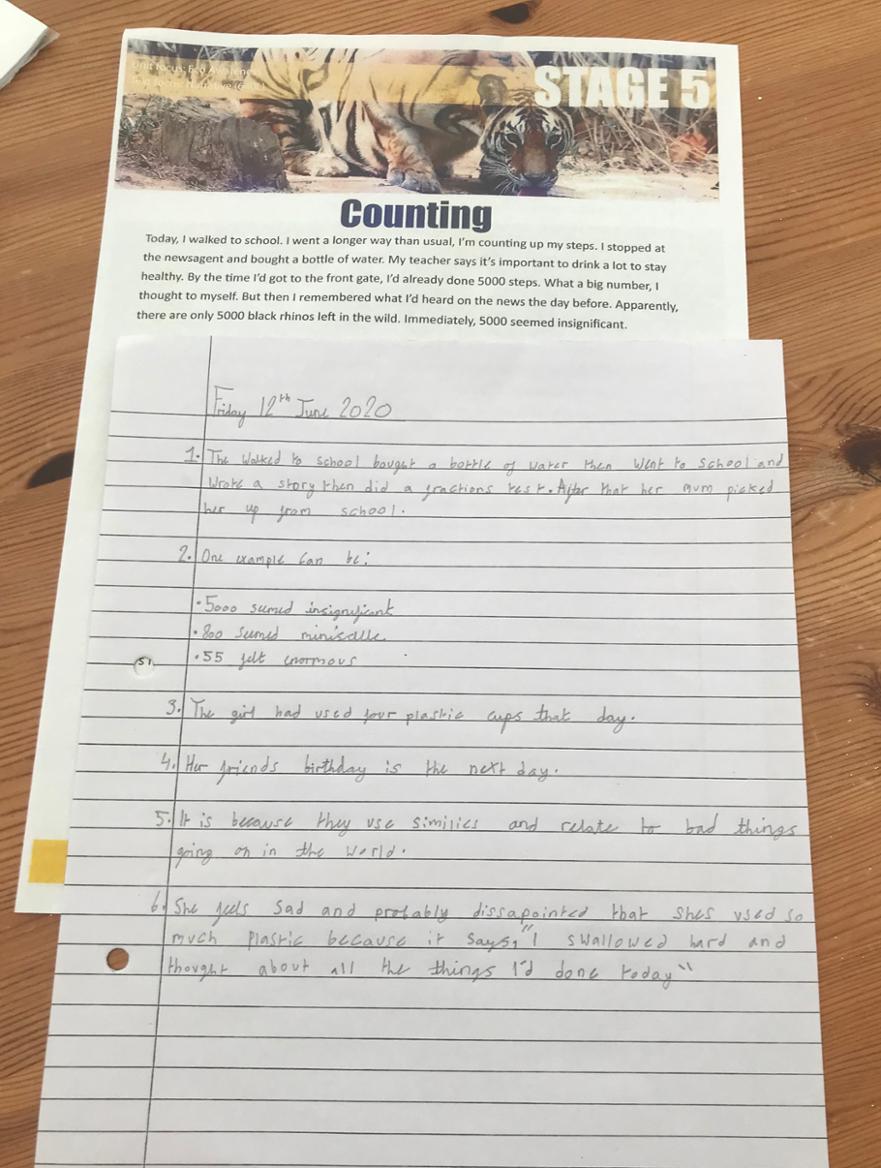 STAGE 5
Counting
Today, I walked to school. I went a longer way than usual, I'm counting up my steps. I stopped at
the newsagent and bought a bottle of water. My teacher says it's important to drink a lot to stay
healthy. By the time I'd got to the front gate, I'd already done 5000 steps. What a big number, I
thought to myself. But then I remembered what I'd heard on the news the day before. Apparently,
there are only 5000 black rhinos left in the wild. Immediately, 5000 seemed insignificant.
Friday 12th June 2020
1. The walked to school bought a bottle of water then went to school and
wrote a story then did a fractions test. After that her mum picked
her up from school.
2. One example can be:
• 5000 seemed insignificant
• 800 seemed
• 55 felt enormous
3. The girl had used four plastic cups that day.
4. Her friends birthday is the next day.
5. It is because they use similies and relate to bad things
going on in the world.
6. She feels sad and probably dissapointed that shes used so
much plastic because it says, "I swallowed hard and
thought about all the things I'd done today"